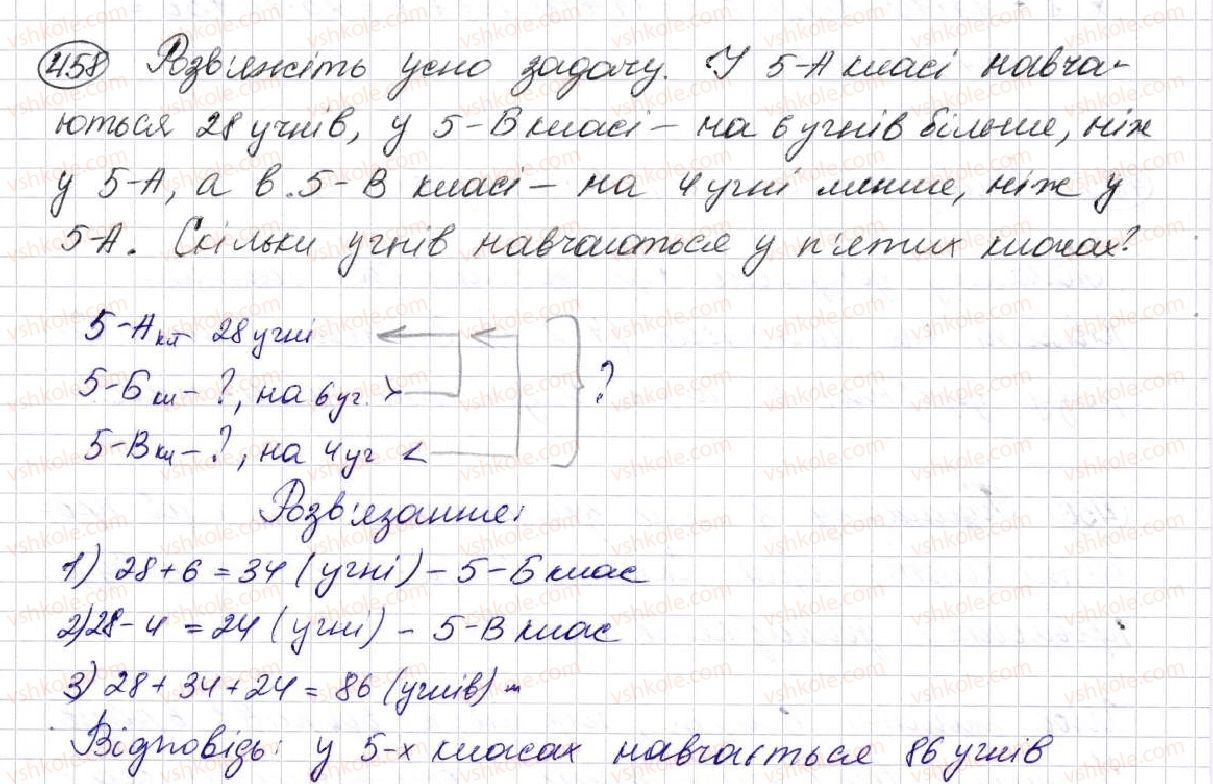 458 Розв'яжіть усно задачу. У 5-А класі навча-
ються 28 учнів, у 5-Б класі – на 6 учнів більше, ніж
у 5-А, а в 5-В класі – на 4 учні менше, ніж у
5-А. Скільки учнів навчаються у п'ятих класах?
5-А кл 28 учні
5-Б кл – ?, на 6 уч. > ?
5-В кл – ?, на 4 уч <
Розв'язання:
1) 28 + 6 = 34 (учні) – 5-Б клас
2) 28 - 4 = 24 (учні) – 5-В клас
3) 28 + 34 + 24 = 86 (учнів) -
Відповідь: у 5-х класах навчається 86 учнів
vshkole.com